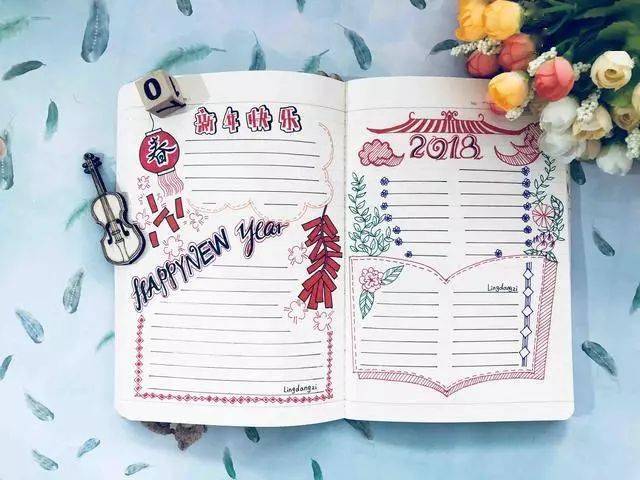 0
新年快乐
春
HAPPYNEW Year
Lingdangzi
2018
Lingdangzi